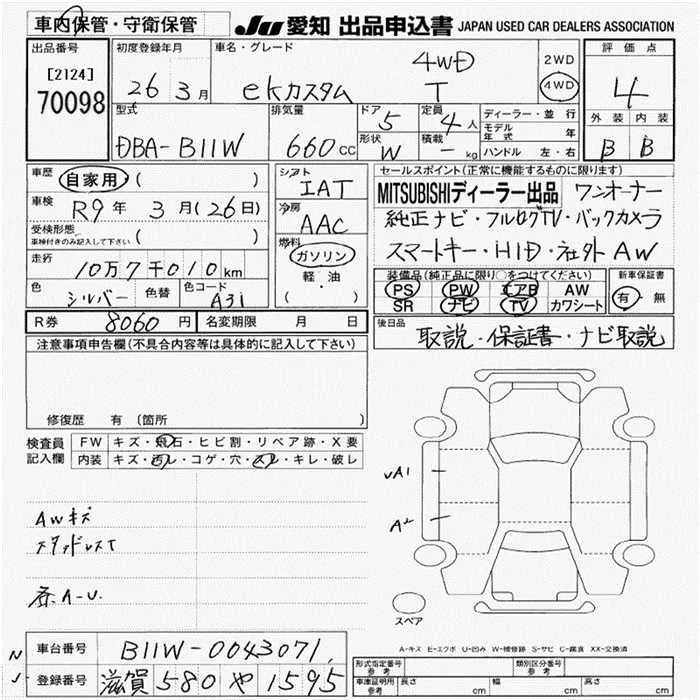 車内保管・守衛保管
JU 愛知 出品申込書 JAPAN USED CAR DEALERS ASSOCIATION
出品番号
[2124]
70098
初度登録年月
26年3月
車名・グレード
4WD
ekカスタム T
2WD
4WD
評価点
4
外装 内装
B B
型式
DBA-B11W
排気量
660cc
ドア
5
定員
4人
形状
W
積載
-kg
ディーラー・並行
モデル年式 年
ハンドル 左・右
車歴 自家用 ( )
車検 R9年3月(26日)
受検形態 ( )
車検付きのみ記入して下さい
走行 10万7千010km
色 シルバー 色替 色コード A31
シフト
IAT
冷房
AAC
燃料
ガソリン
軽・油
( )
セールスポイント(正常に機能するものに限ります)
MITSUBISHIディーラー出品 ワンオーナー
純正ナビ・フルセグTV・バックカメラ
スマートキー・HID・社外AW
装備品(純正品に限り○をつけてください)
PS PW エアB AW
SR ナビ TV カワシート
新車保証書
有・無
R券 8060円 名変期限 月 日
後日品
取説・保証書・ナビ取説
注意事項申告欄(不具合内容等は具体的に記入して下さい)
修復歴 有 (箇所 )
検査員記入欄
FW キズ・飛石・ヒビ割・リペア跡・X要
内装 キズ・汚レ・コゲ・穴・スレ・キレ・破レ
AWキズ
スタッドレスT
A-U.
A1
A2
スペア
A-キズ E-エクボ U-凹み W-補修跡 S-サビ C-腐食 XX-交換済
車台番号 B11W-0043071
登録番号 滋賀 580 や 1595
N
J
形式指定番号 参考
類別区分番号 参考
車庫証明用 参考
長さ cm 幅 cm 高さ cm